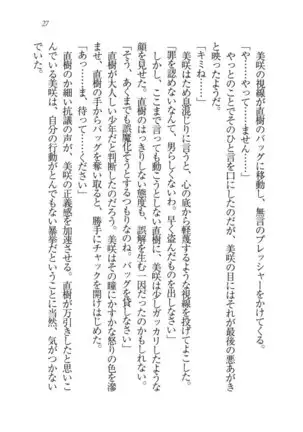 27
美咲の視線が直樹のバッグに移動し、無言のプレッシャーをかけてくる。
「や……やって……ません……」
やっとのことでそのひと言を口にしたのだが、美咲の目にはそれが最後の悪あがき
と映ったようだ。
「キミね……」
美咲はため息混じりに言うと、心の底から軽蔑するような視線を投げかけた。
「罪を認めないなんて、男らしくないわよ。早く盗んだものを出しなさい」
しかし、ここまで言っても動こうとしない直樹に、美咲は少しガッカリしたような
顔を見せた。
「そう、あくまでも誤魔化そうとするつもりなのね。バッグを貸しなさい」
直樹のはっきりしない態度も、誤解を生む一因だったのかもしれないが、
直樹が大人しい少年だと判断したのだろう。美咲はその瞳にかすかな怒りの色を滲
ませて、直樹の手からバッグを奪い取ると、勝手にチャックを開けはじめた。
「あっ……ま、待って……ください」
直樹のか細い抗議の声が、美咲の正義感を加速させる。直樹が万引きしたと思いこ
んでいる美咲は、自分の行動がとんでもない暴挙だということに当然、気がつかない
でいた。